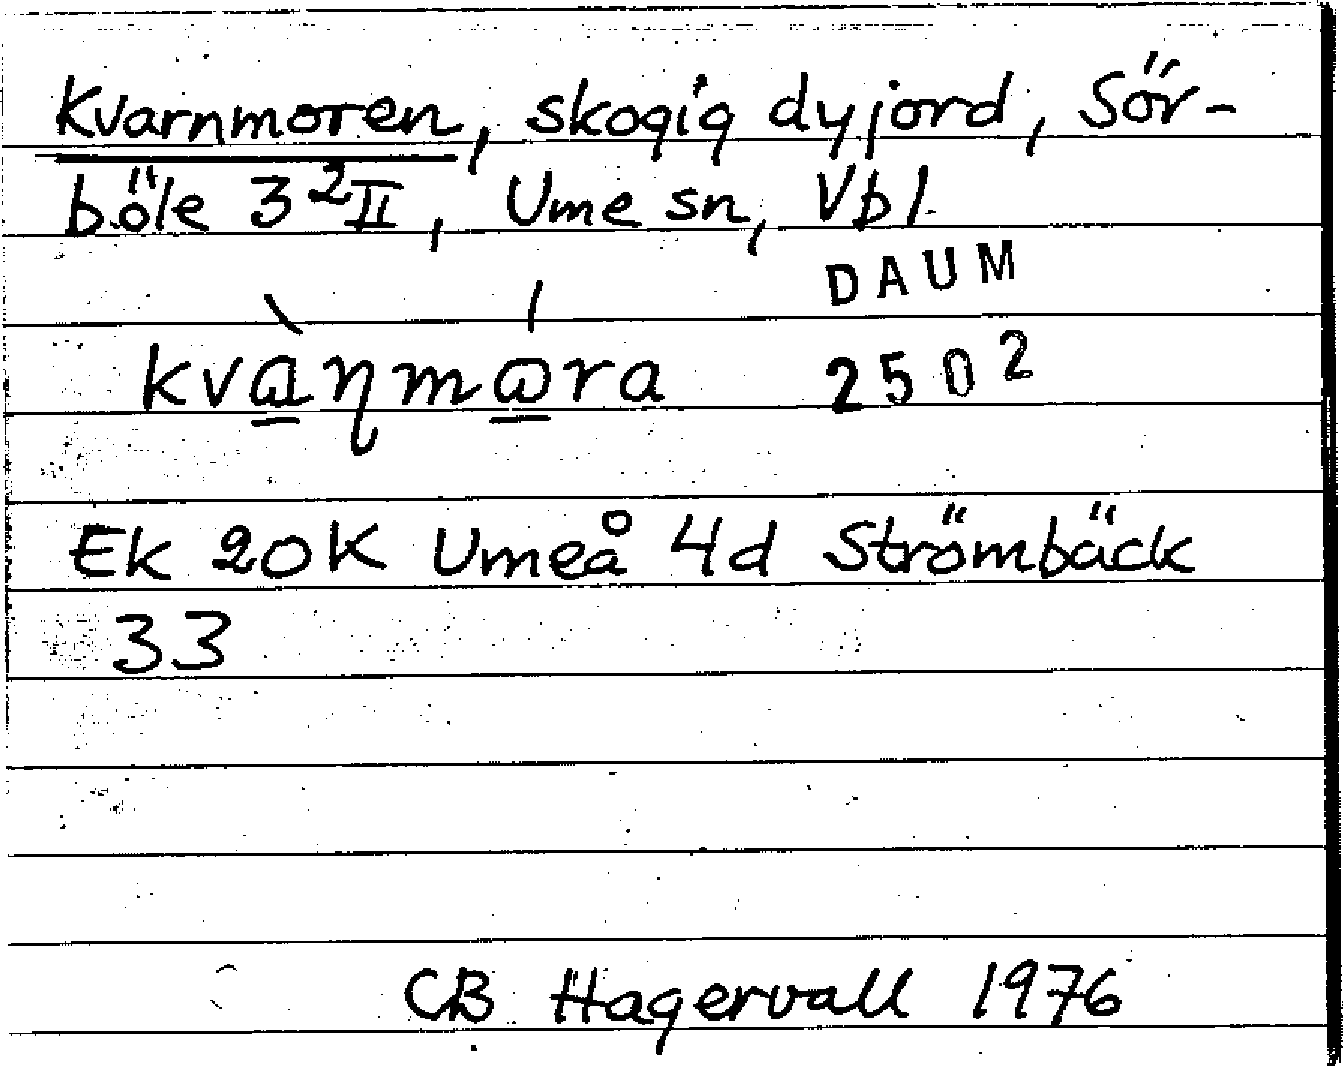 Kvarnmoren, skogig dyjord, Sör-
böle 3²II, Ume sn, Vbl.
DAUM
2502
Ek 20K Umeå 4d Strömbäck
33
CB Hagervall 1976